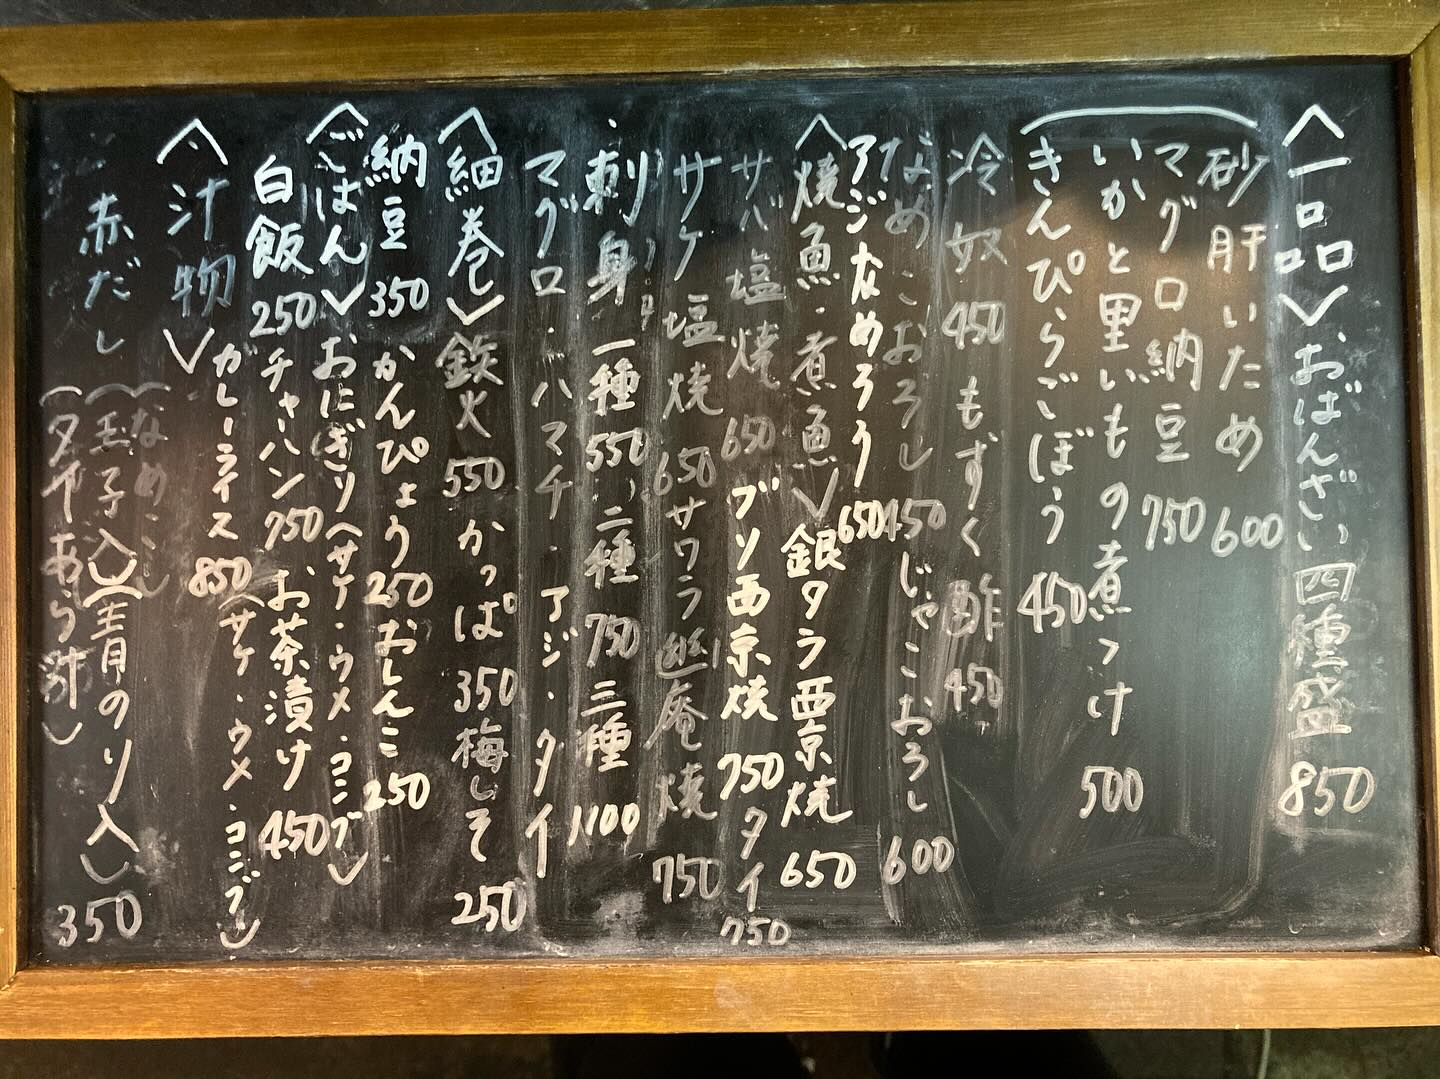 〈一品〉おばんざい四種盛 850
砂肝いため 600
マグロ納豆 750
いかと里いもの煮つけ 500
きんぴらごぼう 450
冷奴 450 もずく酢 450
なめこおろし 450 じゃこおろし 600
アジなめろう 650
〈焼魚・煮魚〉銀ダラ西京焼 650
サバ塩焼 650 ブリ西京焼 750 タイ 750
サケ塩焼 650 サワラ幽庵焼 750
刺身 一種 550 二種 750 三種 1100
マグロ・ハマチ・アジ・タイ
〈細巻〉鉄火 550 かっぱ 350 梅しそ 250
納豆 350 かんぴょう 250 おしんこ 250
〈ごはん〉おにぎり(サケ・ウメ・コンブ)
白飯 250 チャーハン 750 お茶漬け 450
カレーライス 850 (サケ・ウメ・コンブ)
〈汁物〉
赤だし (なめこ) (玉子入) (青のり入) (タイあら汁) 350